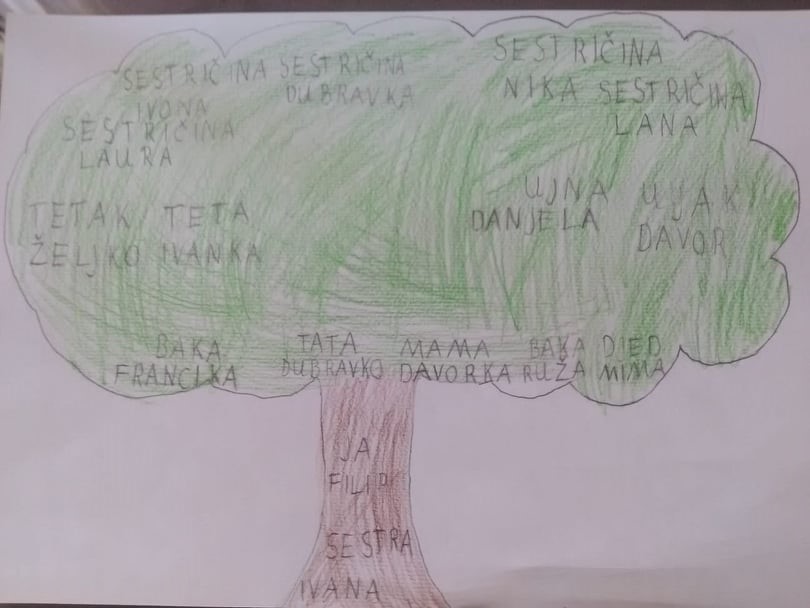 SESTRIČINA
IVONA
SESTRIČINA
DUBRAVKA
SESTRIČINA
NIKA
SESTRIČINA
LANA
SESTRIČINA
LAURA
TETAK
ŽELJKO
TETA
IVANKA
UJNA
DANJELA
UJAK
DAVOR
BAKA
FRANCIKA
TATA
DUBRAVKO
MAMA
DAVORKA
BAKA
RUŽA
DIED
MIMA
JA
FILIP
SESTRA
IVANA